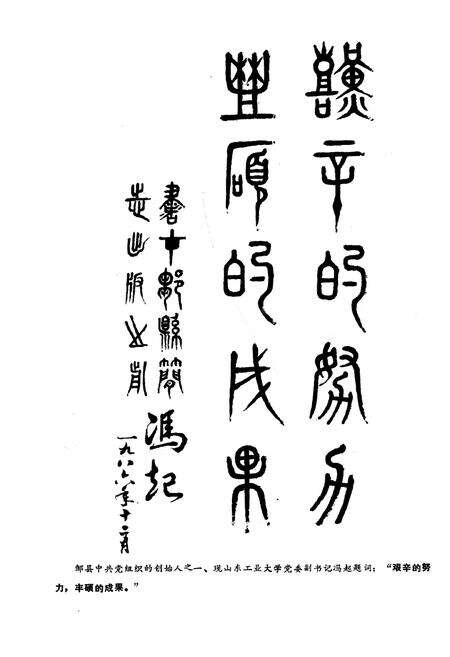 艱辛的努力
豐碩的成果
書 鄒縣簡
志出版之前
馮起
一九八六年十二月
邹县中共党组织的创始人之一、现山东工业大学党委副书记冯起题词：“艰辛的努
力，丰硕的成果。”